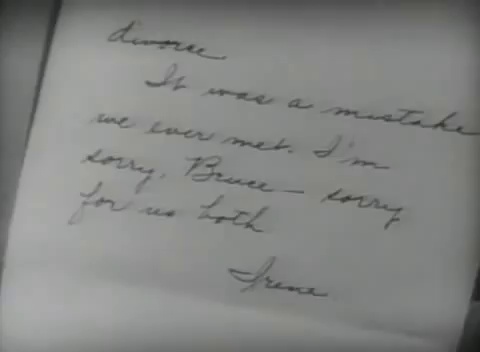 divorce
It was a mistake
we ever met. I'm
sorry, Bruce – sorry
for us both
Irene